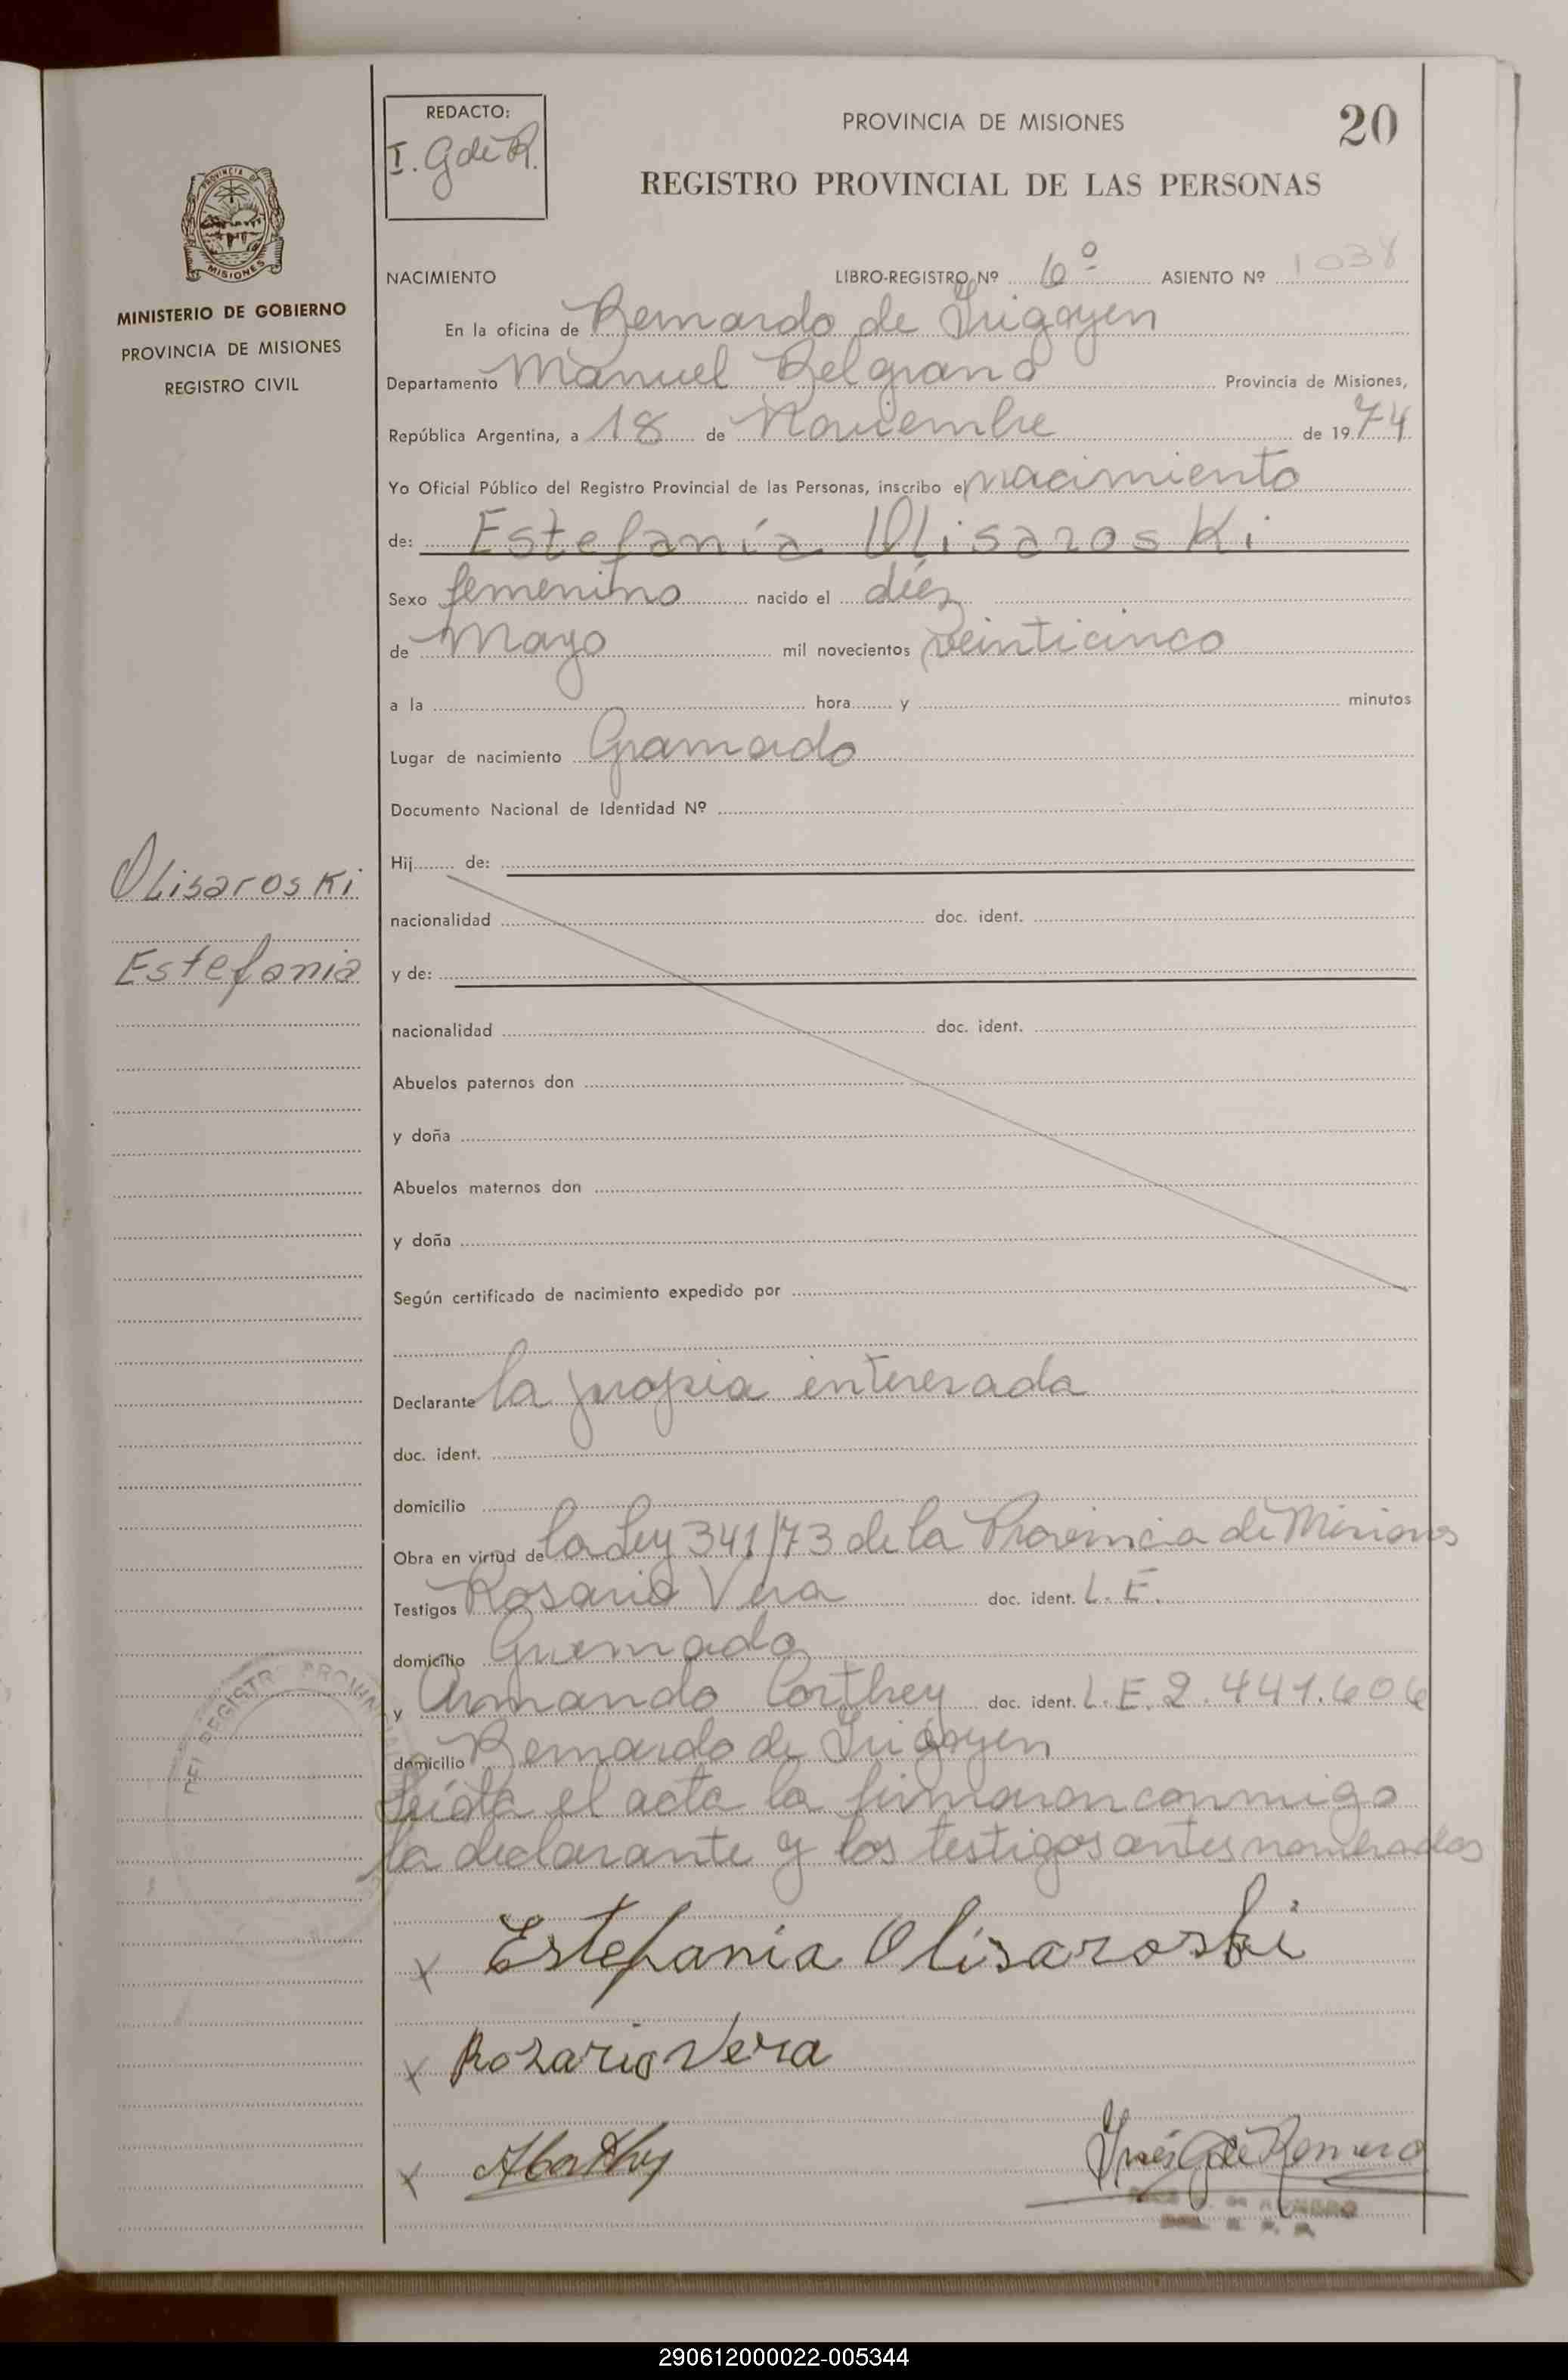 REDACTO:
I. G de R.
PROVINCIA DE MISIONES
20
REGISTRO PROVINCIAL DE LAS PERSONAS
PROVINCIA DE
MISIONES
MINISTERIO DE GOBIERNO
PROVINCIA DE MISIONES
REGISTRO CIVIL
NACIMIENTO LIBRO-REGISTRO Nº 6º ASIENTO Nº 1038
En la oficina de Bernardo de Irigoyen
Departamento Manuel Belgrano Provincia de Misiones,
República Argentina, a 18 de Noviembre de 1974
Yo Oficial Público del Registro Provincial de las Personas, inscribo el nacimiento
de: Estefanía Olisaroski
Sexo femenino nacido el diez
de Mayo mil novecientos veinticinco
a la hora y minutos
Lugar de nacimiento Gramado
Documento Nacional de Identidad Nº
Hij de:
Olisaroski
nacionalidad doc. ident.
Estefania
y de:
nacionalidad doc. ident.
Abuelos paternos don
y doña
Abuelos maternos don
y doña
Según certificado de nacimiento expedido por
Declarante la propia interesada
doc. ident.
domicilio
Obra en virtud de la Ley 341/73 de la Provincia de Misiones
Testigos Rosario Vera doc. ident. L.E.
domicilio
y Armando Corthey doc. ident. L.E. 2.441.606
domicilio Bernardo de Irigoyen
DEL REGISTRO PROVIN
Leída el acta la firmaron conmigo
la declarante y los testigos antes nombrados
x Estefania Olisaroski
x Rozario Vera
x
Inés G de Romero
290612000022-005344